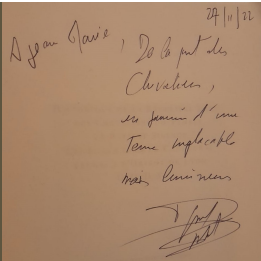 27/11/22
A Jean Marie,
De la part des
Chevaliers,
en d'une
Terre implacable
mais lumineuse